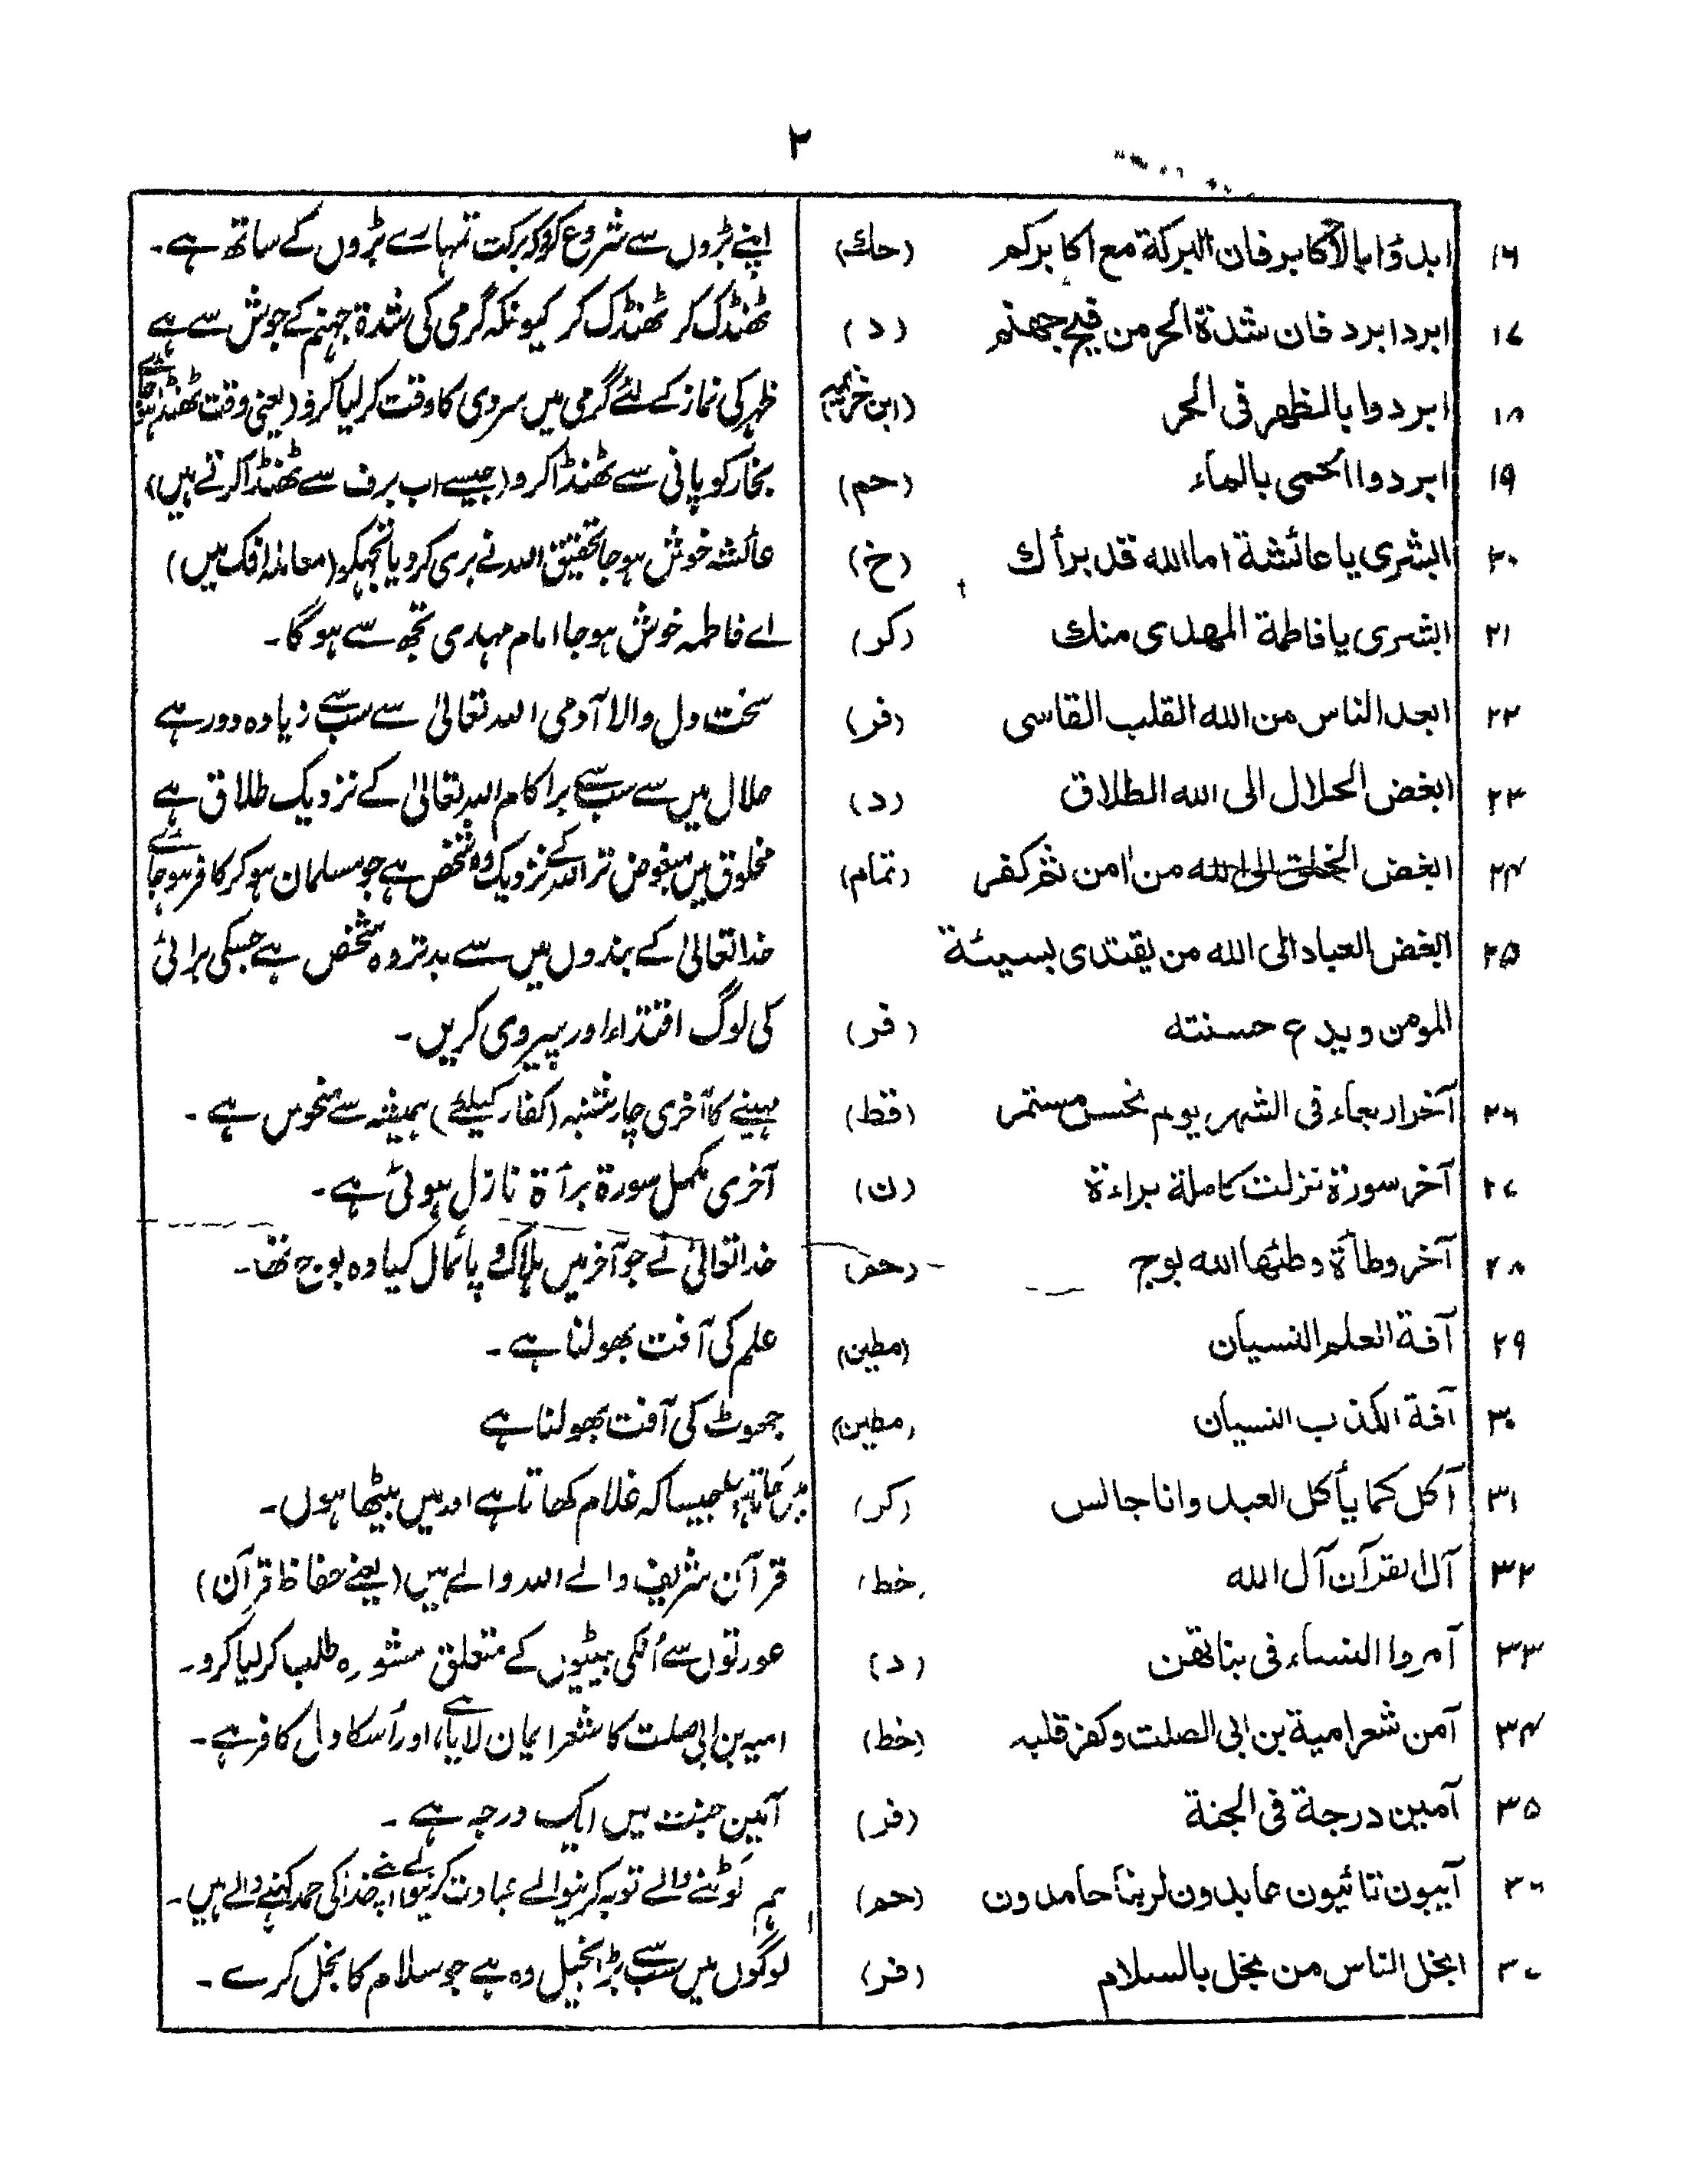 ۲
۱۶ ابدؤا بالاکابر فان البرکة مع اکابرکم (حك) اپنے بڑوں سے شروع کرو کہ برکت تمہارے بڑوں کے ساتھ ہے۔
۱۷ ابرد ابرد فان شدة الحر من فیح جهنم (د) ٹھنڈک کر ٹھنڈک کر کیونکہ گرمی کی شدة جہنم کے جوش سے ہے
۱۸ ابردوا بالظهر فی الحر (ابن خزیمہ) ظہر کی نماز کے لئے گرمی میں سردی کا وقت کر لیا کرو (یعنی وقت ٹھنڈا ہو جائے
۱۹ ابردوا الحمی بالماء (حم) بخار کو پانی سے ٹھنڈا کرو (جیسے اب برف سے ٹھنڈا کرتے ہیں)
۲۰ البشری یا عائشة اما الله قد برأك (خ) عائشہ خوش ہو جا تحقیق اللہ نے بری کر دیا تجھکو (معاملہ افک میں)
۲۱ البشری یا فاطمة المهدی منك (کر) اے فاطمہ خوش ہو جا امام مہدی تجھ سے ہو گا۔
۲۲ ابعد الناس من الله القلب القاسی (فر) سخت دل والا آدمی اللہ تعالیٰ سے سب سے زیادہ دور ہے
۲۳ ابغض الحلال الی الله الطلاق (د) حلال میں سے سب سے برا کام اللہ تعالیٰ کے نزدیک طلاق ہے
۲۴ ابغض الخلق الی الله من اٰمن ثم کفر (تمام) مخلوق میں مبغوض تر اللہ کے نزدیک وہ شخص ہے جو مسلمان ہو کر کافر ہو جائے
۲۵ ابغض العباد الی الله من یقتدی بسیئة خدا تعالیٰ کے بندوں میں سے بدتر وہ شخص ہے جسکی برائی
المومن ویدع حسنته (فر) کی لوگ اقتداء اور پیروی کریں۔
۲۶ آخر اربعاء فی الشهر یوم نحس مستمر (قط) مہینے کا آخری چارشنبہ (کفار کیلئے) ہمیشہ سے منحوس ہے۔
۲۷ آخر سورة نزلت کاملة براءة (ن) آخری مکمل سورة برأة نازل ہوئی ہے۔
۲۸ آخر وطأة وطئها الله بوج (حم) خدا تعالیٰ نے جو آخر میں ہلاک و پائمال کیا وہ بوج تھا۔
۲۹ آفة العلم النسیان (مطین) علم کی آفت بھولنا ہے۔
۳۰ آفة الکذب النسیان (مطین) جھوٹ کی آفت بھولنا ہے
۳۱ آکل کما یأکل العبد وانا جالس (کر) میں کھاتا ہوں جیسا کہ غلام کھاتا ہے اور میں بیٹھا ہوں۔
۳۲ آل القرآن آل الله (خط) قرآن شریف والے اللہ والے ہیں (یعنے حفاظ قرآن)
۳۳ آمروا النساء فی بناتهن (د) عورتوں سے اُنکی بیٹیوں کے متعلق مشورہ طلب کر لیا کرو۔
۳۴ آمن شعر امیة بن ابی الصلت وکفر قلبه (خط) امیہ بن ابی صلت کا شعر ایمان لایا ہے، اور اُسکا دل کافر ہے۔
۳۵ آمین درجة فی الجنة (فر) آمین جنت میں ایک درجہ ہے۔
۳۶ آیبون تائیبون عابدون لربنا حامدون (حم) ہم لوٹنے والے توبہ کرنیوالے عبادت کرنیوالے اپنے خدا کی حمد کہنے والے ہیں۔
۳۷ ابخل الناس من بخل بالسلام (فر) لوگوں میں سب سے بڑا بخیل وہ ہے جو سلام کا بخل کرے۔